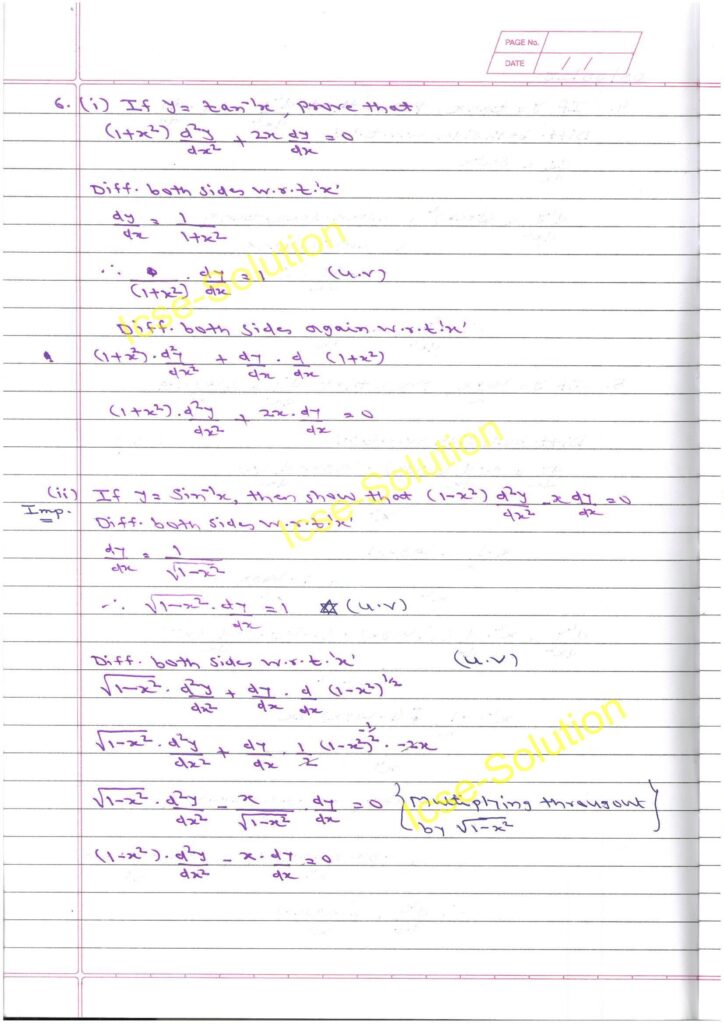 PAGE No.
DATE / /
6. (i) If y = tan⁻¹x, prove that
(1+x²) d²y/dx² + 2x dy/dx = 0
Diff. both sides w.r.t.'x'
dy/dx = 1/1+x²
∴ /(1+x²) . dy/dx = 1 (u.v)
Diff. both sides again w.r.t.'x'
(1+x²) . d²y/dx² + dy/dx . d/dx (1+x²)
(1+x²) . d²y/dx² + 2x . dy/dx = 0
(ii) If y = Sin⁻¹x, then show that (1-x²) d²y/dx² - x dy/dx = 0
Imp. Diff. both sides w.r.t.'x'
dy/dx = 1/√1-x²
∴ √1-x² . dy/dx = 1 ☆ (u.v)
Diff. both sides w.r.t.'x' (u.v)
√1-x² . d²y/dx² + dy/dx . d/dx (1-x²)^1/2
√1-x² . d²y/dx² + dy/dx . 1/2 (1-x²)^-1/2 . -2x
√1-x² . d²y/dx² - x/√1-x² . dy/dx = 0 {Multiplying througout
by √1-x²}
(1-x²) . d²y/dx² - x . dy/dx = 0
Icse-Solution
Icse-Solution
Icse-Solution